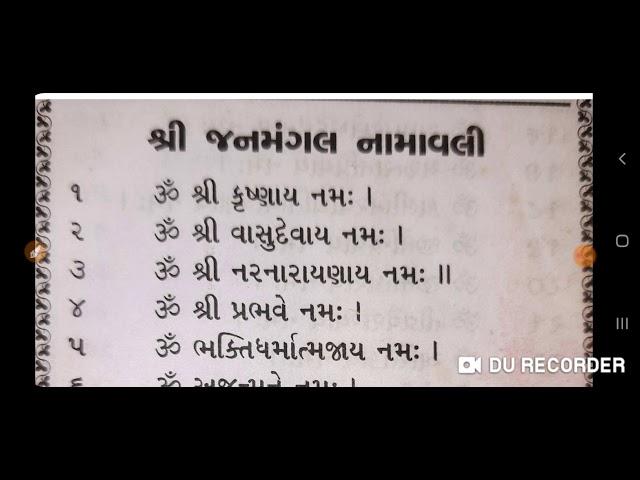 શ્રી જનમંગલ નામાવલી
૧ ૐ શ્રી કૃષ્ણાય નમઃ ।
૨ ૐ શ્રી વાસુદેવાય નમઃ ।
૩ ૐ શ્રી નરનારાયણાય નમઃ ॥
૪ ૐ શ્રી પ્રભવે નમઃ ।
૫ ૐ ભક્તિધર્માત્મજાય નમઃ ।
૬ ૐ અજન્મને નમઃ ।
DU RECORDER